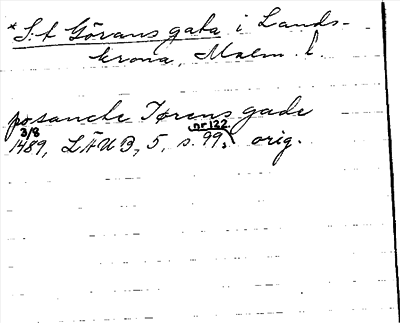 *S:t Görans gata i Lands-
krona, Malm. l.
po sancte Iørens gade
3/8 nr 122
1489, LÄUB, 5, s. 99, orig.